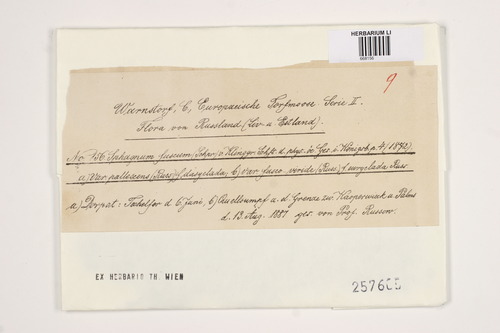 HERBARIUM LI
9
Warnstorf, C, Europaeische Torfmoose. Serie II.
Flora von Russland (Liv- u. Estland).
No. 136 Sphagnum fuscum (Schpr.) v. Klinggr. Schft. d. phys. ök. Ges. i. Königsb. p. 4/(1872)
a) var. pallescens (Russ.) f. dasyclada, b) var. fusco viride (Russ.) f. euryclada Russ.
a) Dorpat: Techelfer d. 6 Juni, b) Quellsumpf a. d. Grenze zw. Kasperwiek u. Palms
d. 13. Aug. 1887 ges. von Prof. Russow.
EX HERBARIO TH. WIEN